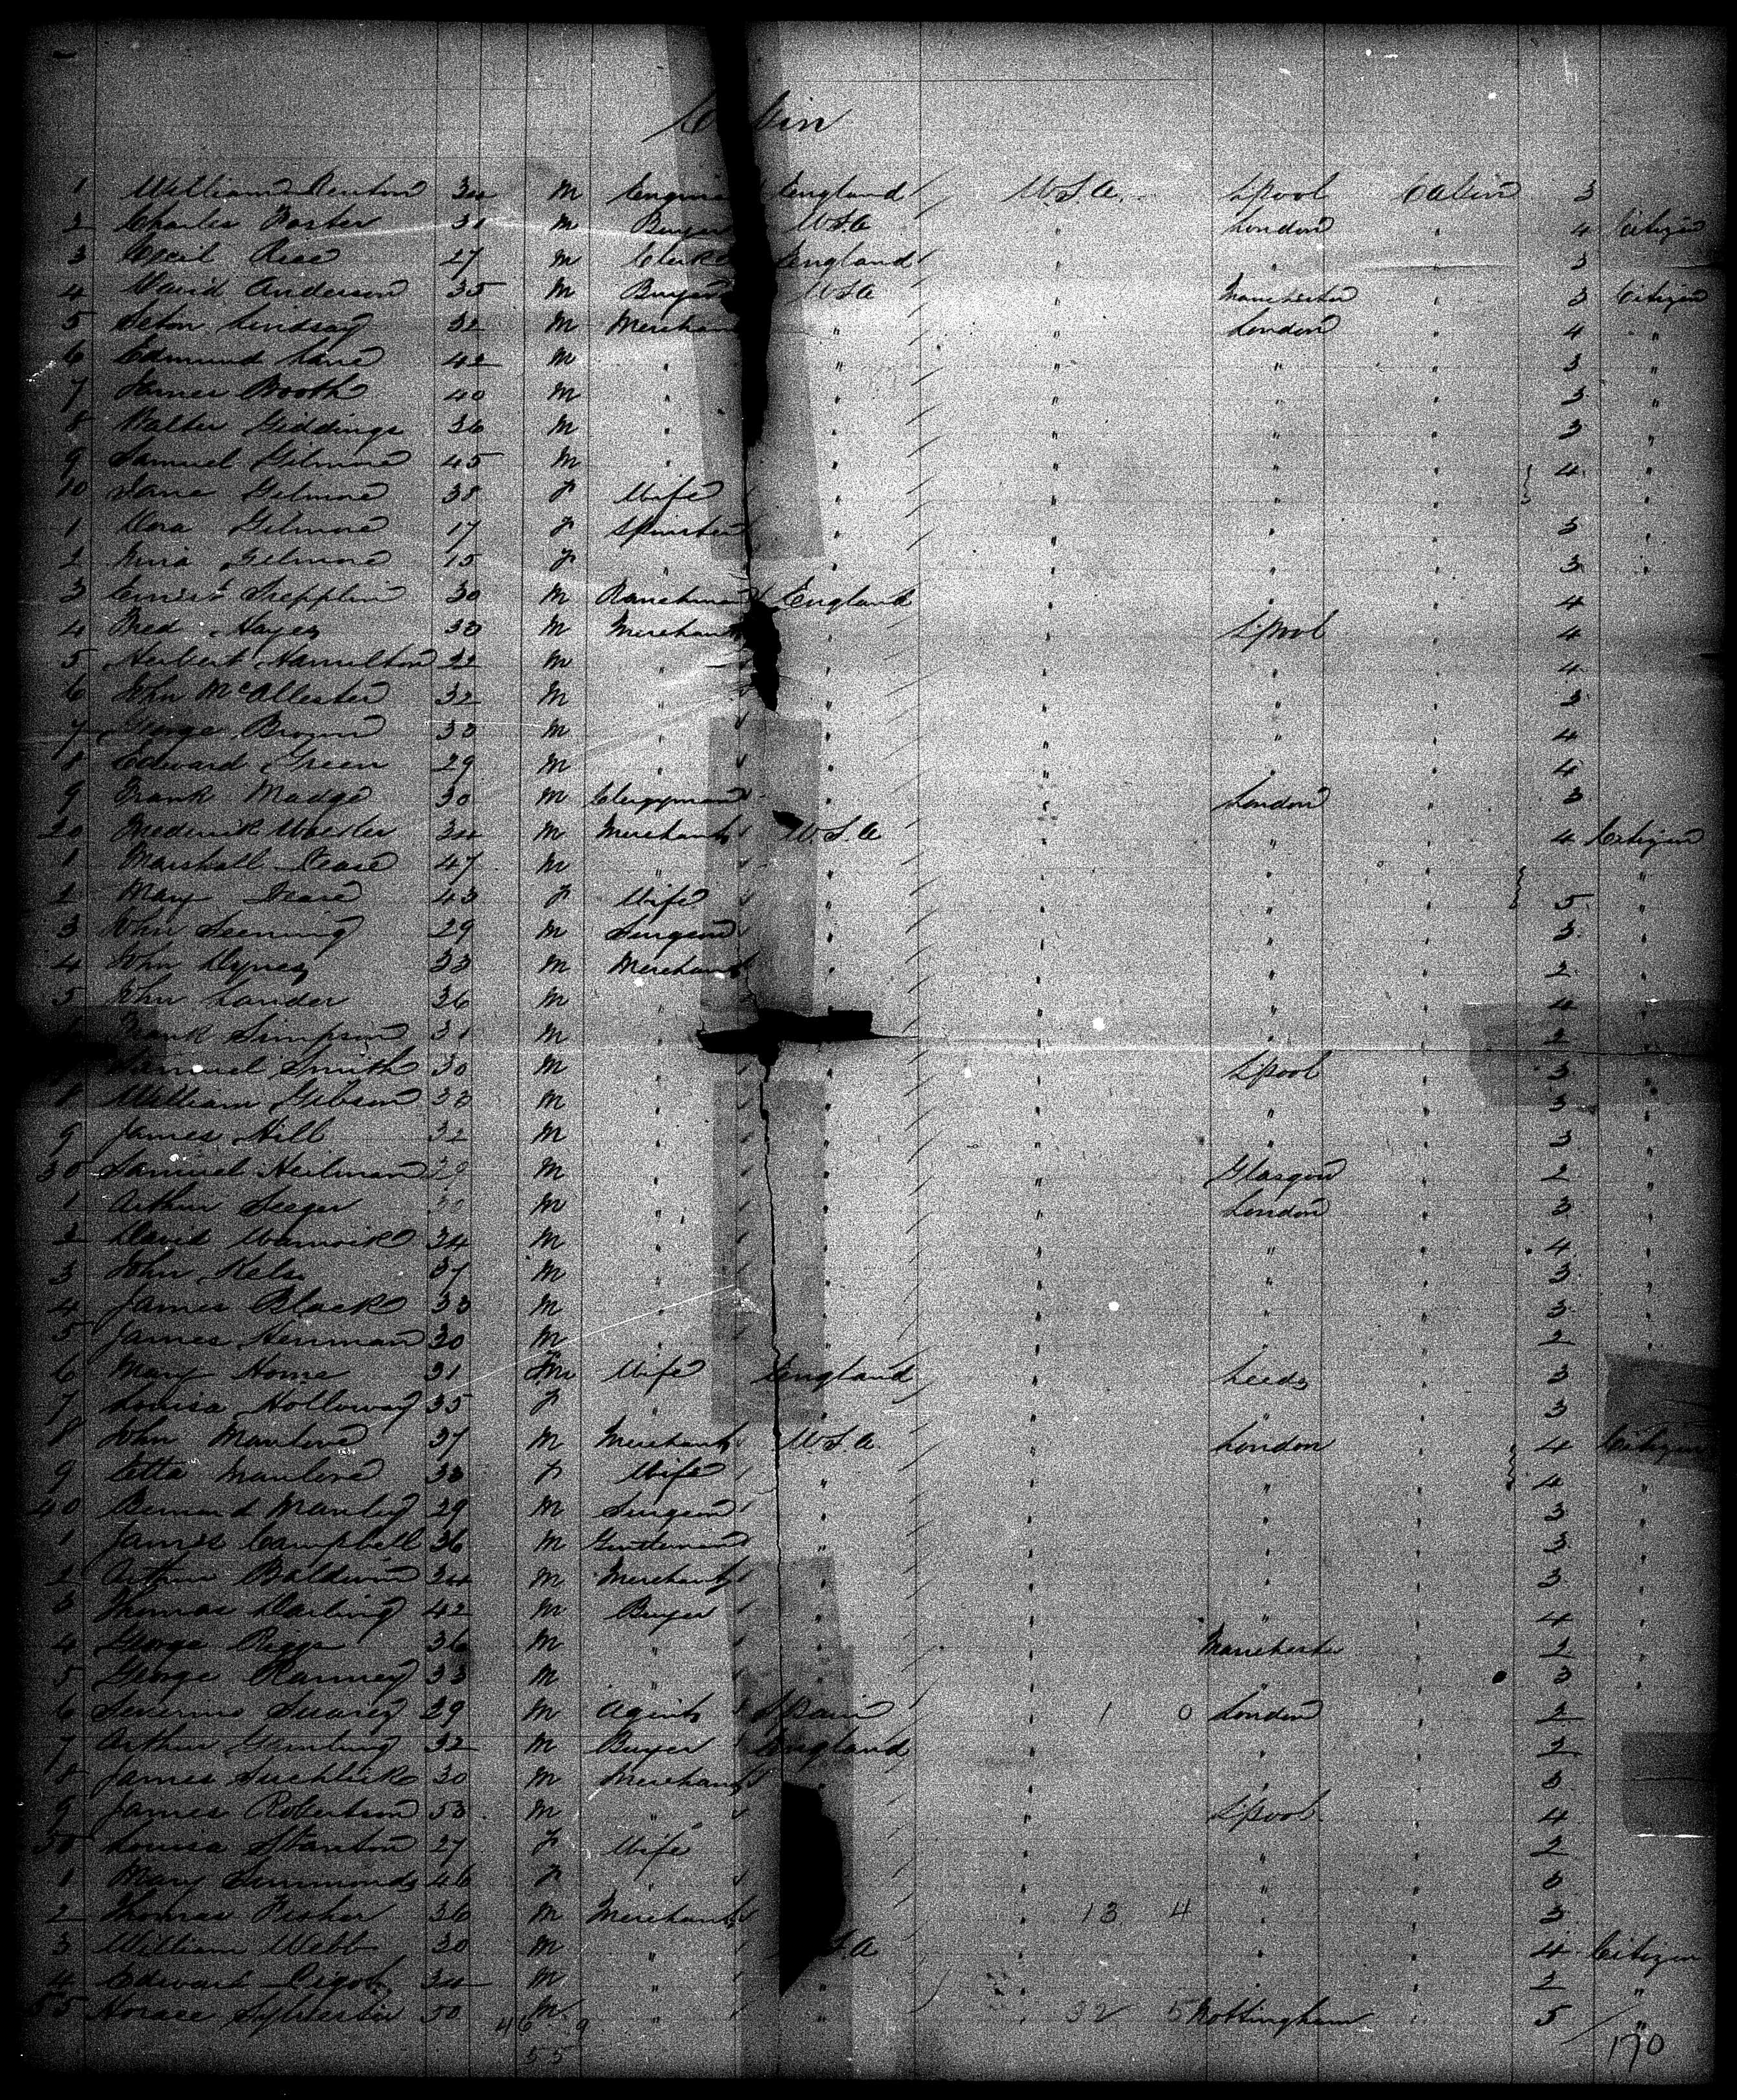 Cabin
1 William Renton 34 M Engineer England / U.S.A. L'pool Cabin 3
2 Charles Foster 31 M Buyer U.S.A / " London " 4 Citizen
3 Cecil Rice 27 M Clerk England / " " " 3
4 David Anderson 35 M Buyer U.S.A / " Manchester " 3 Citizen
5 Seton Lindsay 32 M Merchant " / " London " 4 "
6 Edmund Lane 42 M " " / " " " 3 "
7 James Booth 40 M " " / " " " 3 "
8 Walter Giddings 36 M " " / " " " 3 "
9 Samuel Gilmore 45 M " " / " " " 4 "
10 Jane Gilmore 38 F Wife " / " " " "
1 Gilmore 17 F Spinster " / " " " 3 "
2 Gilmore 15 F " " / " " " 3 "
3 Ernest 30 M Ranchman England / " " " 4
4 Fred Hayes 30 M Merchant " / " L'pool " 4
5 Herbert Hamilton 22 M " " / " " " 4
6 John McAllester 32 M " " / " " " 3
7 George Brown 33 M " " / " " " 4
8 Edward Green 29 M " " / " " " 4
9 Frank Madge 30 M Clergyman " / " London " 3
20 Frederick 34 M Merchant U.S.A / " " " 4 Citizen
1 Marshall 47 M " " / " " " "
2 Mary 43 F Wife " / " " " 5 "
3 John 29 M Surgeon " / " " " 3 "
4 John Dynes 33 M Merchant " / " " " 2 "
5 John Lander 36 M " " / " " " 4 "
Frank Simpson 31 M " " / " " " 2 "
Samuel Smith 30 M " " / " L'pool " 3 "
8 William Gibson 33 M " " / " " " 3 "
9 James Hill 32 M " " / " " " 3 "
30 Samuel Heilman 29 M " " / " Glasgow " 2 "
1 Arthur Seeger 30 M " " / " London " 3 "
2 David Warnock 34 M " " / " " " 4 "
3 John 37 M " " / " " " 3 "
4 James Black 33 M " " / " " " 3 "
5 James Herrman 30 M " " / " " " 2 "
6 Mary Horne 31 Wife England / " Leeds " 3
7 Louisa Holloway 35 F " " / " " " 3
8 John Manlove 37 M Merchant U.S.A / " London " 4 Citizen
9 Etta Manlove 33 F Wife " / " " " 4 "
40 Bernard Manley 29 M Surgeon " / " " " 3 "
1 James Campbell 36 M Gentleman " / " " " 3 "
2 Arthur Baldwin 34 M Merchant " / " " " 3 "
3 Thomas Darling 42 M Buyer " / " " " 4 "
4 George Riggs 36 M " " / " Manchester " 2 "
5 George Ranney 33 M " " / " " " 3 "
6 Severino Suarez 29 M Agent Spain / " 1 0 London " 2
7 Arthur 32 M Buyer England / " " " 2
8 James 30 M Merchant " / " " " 3
9 James Robertson 53 M " / " L'pool " 4
50 Louisa Stanton 27 F Wife / " " " 2
1 Mary Simmonds 46 F " / " " " 3
2 Thomas Fisher 36 M Merchant / " 13 4 " " 3
3 William Webb 30 M " S.A / " " " 4 Citizen
4 Edward 34 M " " / " " " 2 "
55 Horace Sylvester 50 M " " " 32 5 Nottingham " 5 "
46 9
55
170